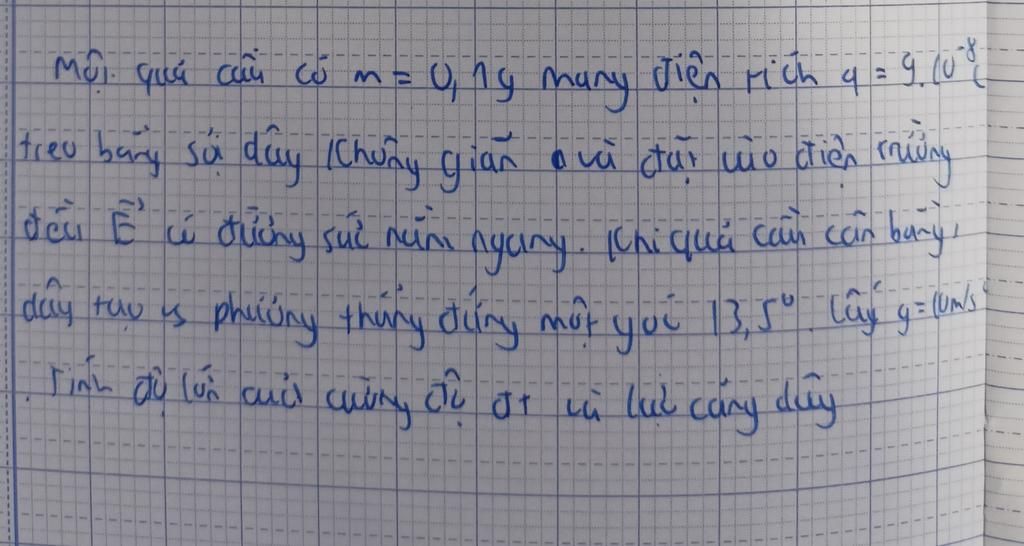 Một quả cầu có m = 0,1g mang điện tích q = 9.10⁻⁸C
treo bằng sợi dây không giãn và đặt vào điện trường
đều E⃗ có đường sức nằm ngang. Khi quả cầu cân bằng,
dây tạo vs phương thẳng đứng một góc 13,5⁰. Lấy g = 10m/s²
Tính độ lớn của cường độ đt và lực căng dây